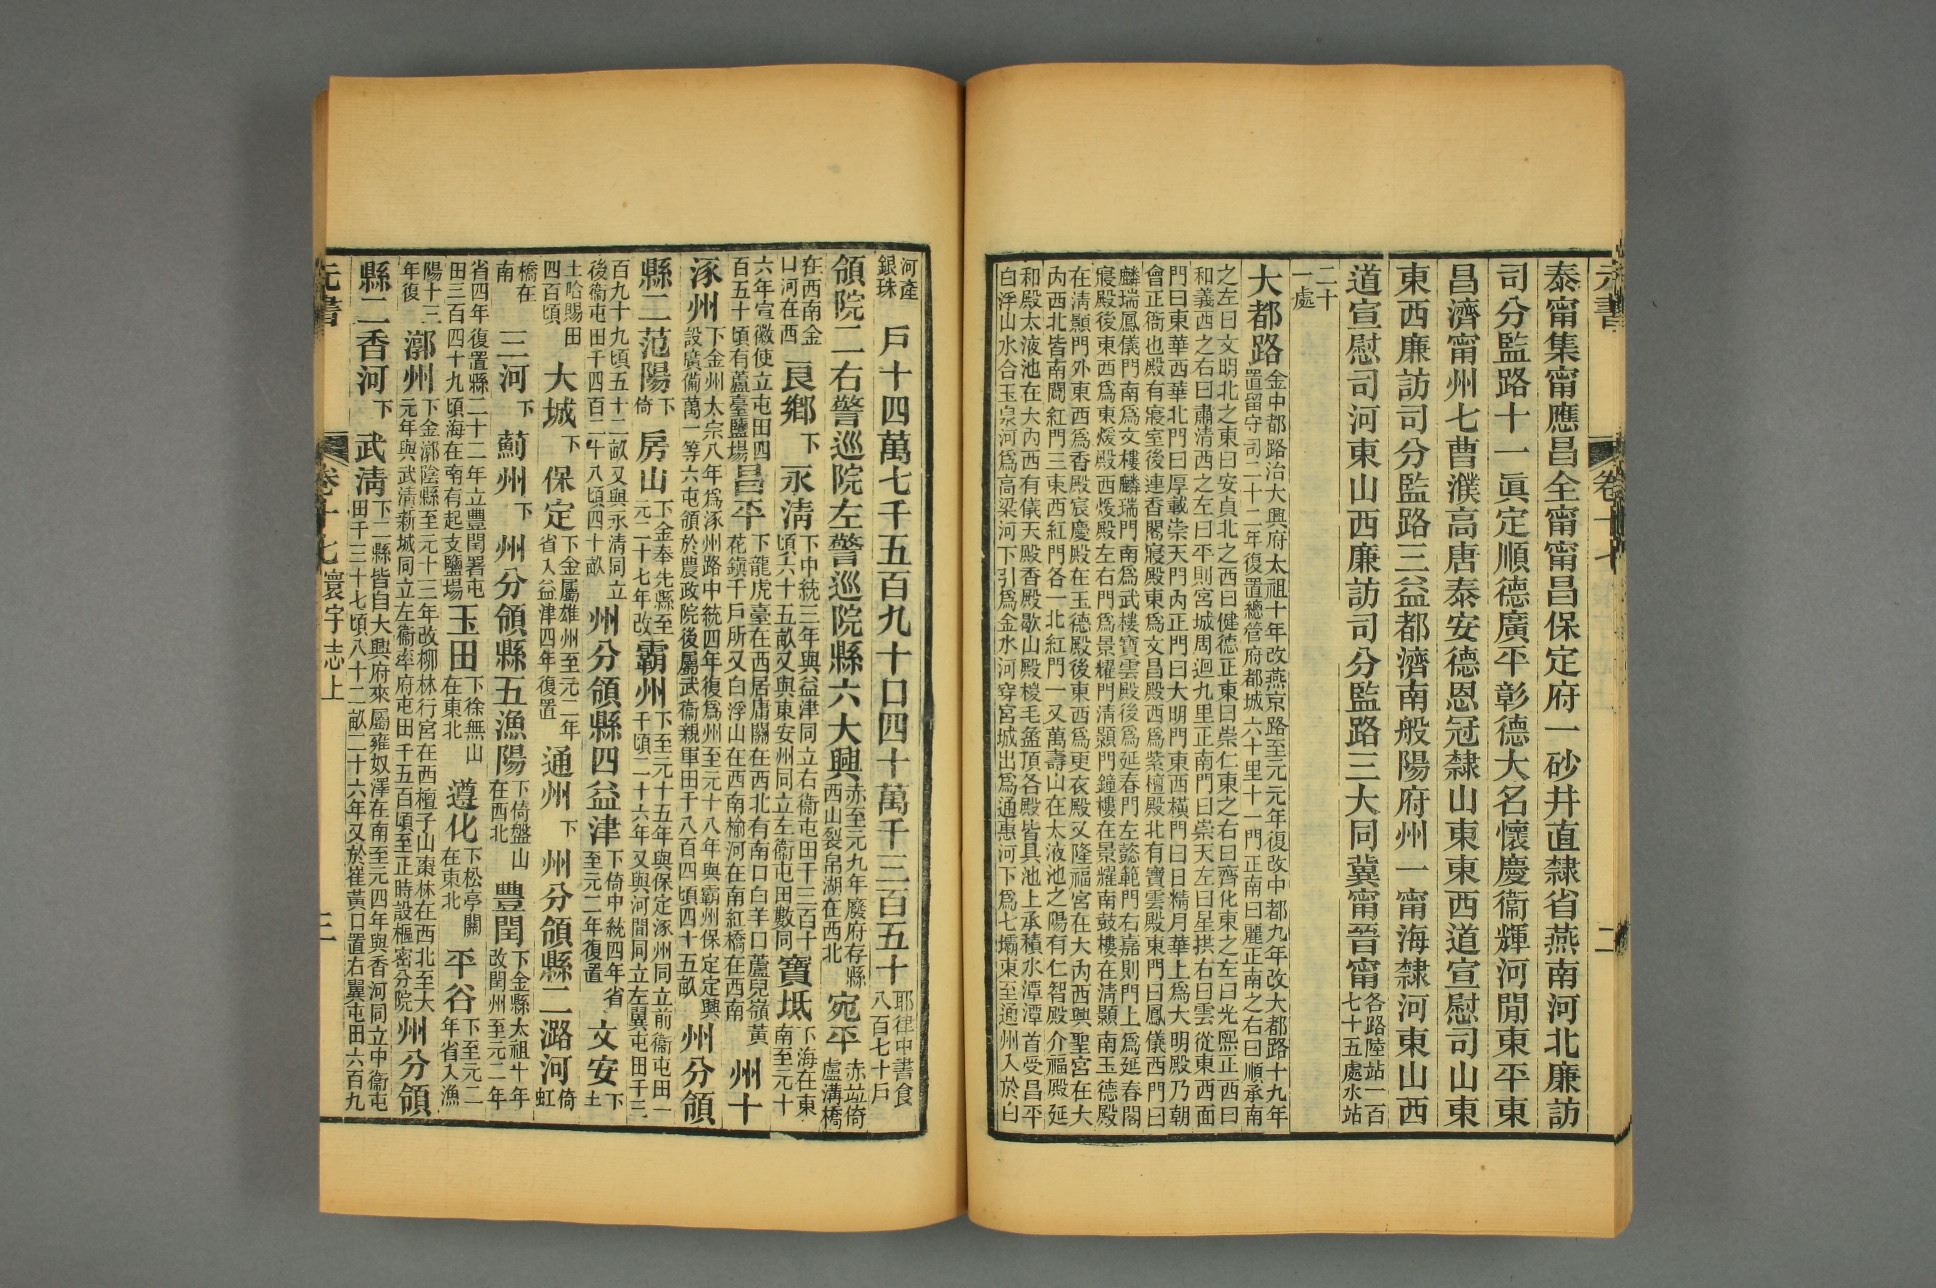 元書 卷十七 二
泰甯集甯應昌全甯甯昌保定府一砂井直隸省燕南河北廉訪
司分監路十一眞定順德廣平彰德大名懷慶衞輝河閒東平東
昌濟甯州七曹濮高唐泰安德恩冠隸山東東西道宣慰司山東
東西廉訪司分監路三益都濟南般陽府州一甯海隸河東山西
道宣慰司河東山西廉訪司分監路三大同冀甯晉甯
各路陸站一百
七十五處水站
二十
一處
大都路
金中都路治大興府太祖十年改燕京路至元元年復改中都九年改大都路十九年
置留守司二十二年復置總管府都城六十里十一門正南曰麗正南之右曰順承南
之左曰文明北之東曰安貞北之西曰健德正東曰崇仁東之右曰齊化東之左曰光熙正西曰
和義西之右曰肅清西之左曰平則宮城周迴九里正南門曰崇天左曰星拱右曰雲從東西面
門曰東華西華北門曰厚載崇天門內正門曰大明門東西橫門曰日精月華上爲大明殿乃朝
會正衙也殿有寢室後連香閣寢殿東爲文昌殿西爲紫檀殿北有寶雲殿東門曰鳳儀西門曰
麟瑞鳳儀門南爲文樓麟瑞門南爲武樓寶雲殿後爲延春門左懿範門右嘉則門上爲延春閣
寢殿後東西爲東煖殿西煖殿左右門爲景耀門清顥門鐘樓在景耀南鼓樓在清顥南玉德殿
在清顥門外東西爲香殿宸慶殿在玉德殿後東西爲更衣殿又隆福宮在大內西興聖宮在大
內西北皆南闢紅門三東西紅門各一北紅門一又萬壽山在太液池之陽有仁智殿介福殿延
和殿太液池在大內西有儀天殿香殿歇山殿椶毛盝頂各殿皆具池上承積水潭潭首受昌平
白浮山水合玉泉河爲高梁河下引爲金水河穿宮城出爲通惠河下爲七壩東至通州入於白
河產
銀珠
戶十四萬七千五百九十口四十萬千三百五十
耶律中書食
八百七十戶
領院二右警巡院左警巡院縣六大興
赤至元九年廢府存縣
西山裂帛湖在西北
宛平
赤竝倚
盧溝橋
在西南金
口河在西
良鄉
下
永清
下中統三年與益津同立右衞屯田千三百十
頃六十五畝又與東安州同立左衞屯田數同
寶坻
下海在東
南至元十
六年宣徽使立屯田四
百五十頃有蘆臺鹽場
昌平
下龍虎臺在西居庸關在西北有南口白羊口蘆兒嶺黃
花鎮千戶所又白浮山在西南榆河在南紅橋在西南
州十
涿州
下金州太宗八年爲涿州路中統四年復爲州至元十八年與霸州保定定興
設廣備萬一等六屯領於農政院後屬武衞親軍田千八百四頃四十五畝
州分領
縣二范陽
下
倚
房山
下金奉先縣至
元二十七年改
霸州
下至元十五年與保定涿州同立前衞屯田一
千頃二十六年又與河間同立左翼屯田千三
百九十九頃五十二畝又與永清同立
後衞屯田千四百二十八頃四十畝
州分領縣四益津
下倚中統四年省
至元二年復置
文安
下
土
土哈賜田
四百頃
大城
下
保定
下金屬雄州至元二年
省入益津四年復置
通州
下
州分領縣二潞河
倚
虹
橋在
南
三河
下
薊州
下
州分領縣五漁陽
下倚盤山
在西北
豐閏
下金縣太祖十年
改閏州至元二年
省四年復置縣二十二年立豐閏署屯
田三百四十九頃海在南有起支鹽場
玉田
下徐無山
在東北
遵化
下松亭關
在東北
平谷
下至元二
年省入漁
陽十三
年復
漷州
下金漷陰縣至元十三年改柳林行宮在西檀子山棗林在西北至大
元年與武清新城同立左衞率府屯田千五百頃至正時設樞密分院
州分領
縣二香河
下
武清
下二縣皆自大興府來屬雍奴澤在南至元四年與香河同立中衞屯
田千三十七頃八十二畝二十六年又於崔黃口置右翼屯田六百九
元書 卷十七 寰宇志上 三